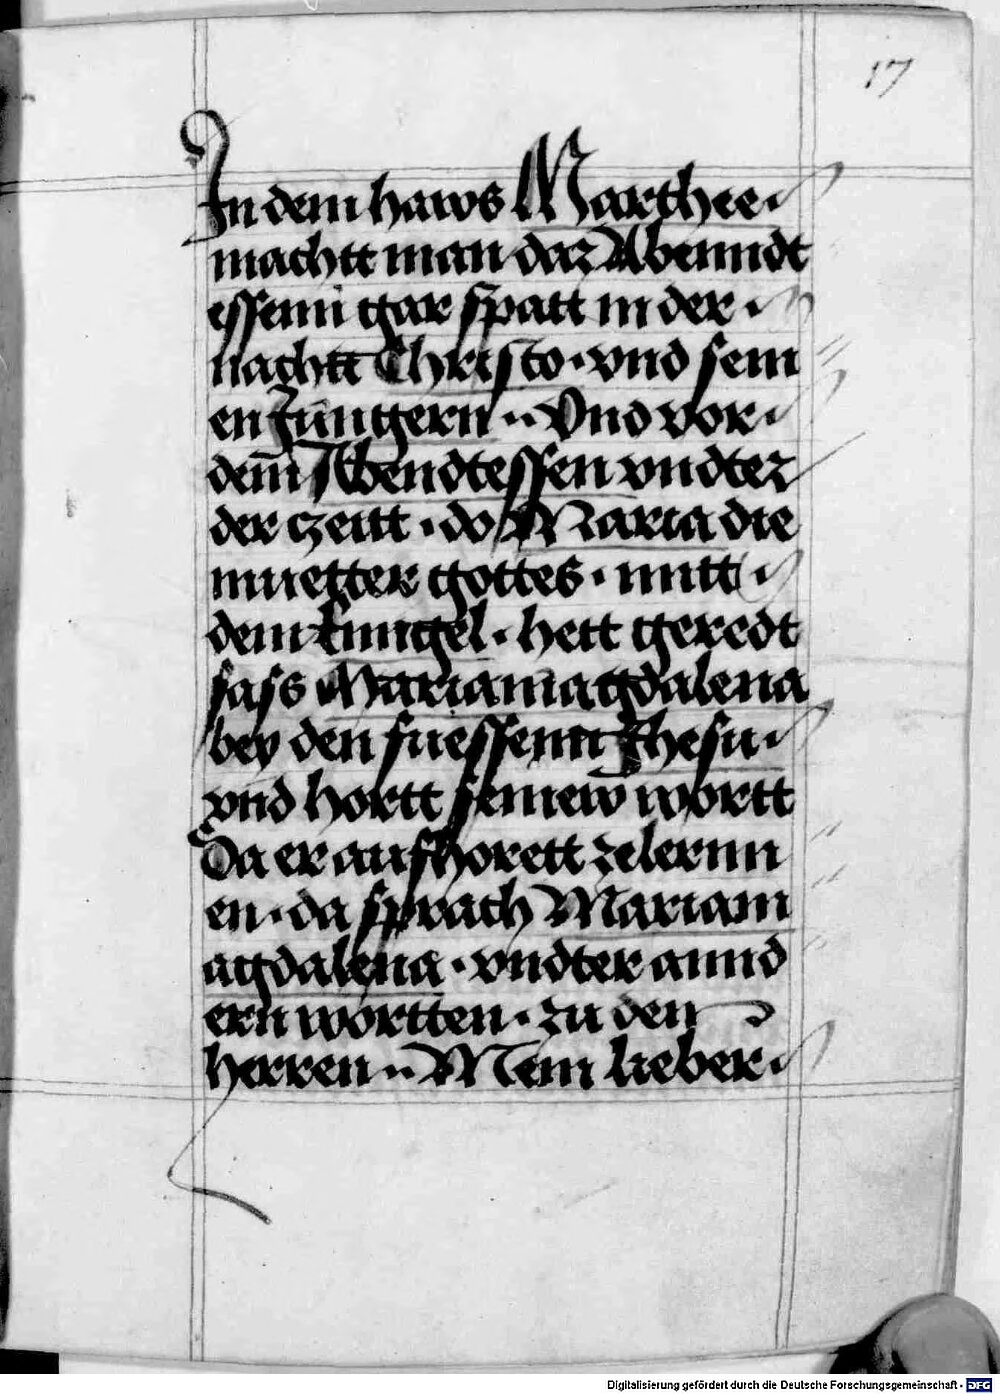 17
In dem haws Marthee ·
machtt man daz Abenndt
essenn gar spatt in der ·
nachtt Christo · vnd sein
en Jungern ·· Vnd vor ·
dem Abendtessen vndter
der czeitt · do Maria die
muetter gottes · mitt ·
dem Enngel · hett geredt
sass Mariamagdalena
bey den fuessenn Jhesu ·
vnd hortt seinew wortt
Da er aufhorett zelernn
en · da sprach Mariam
agdalena · vndter annd
ern wortten · zu den
Herren ·· Mein lieber ·
Digitalisierung gefördert durch die Deutsche Forschungsgemeinschaft - DFG